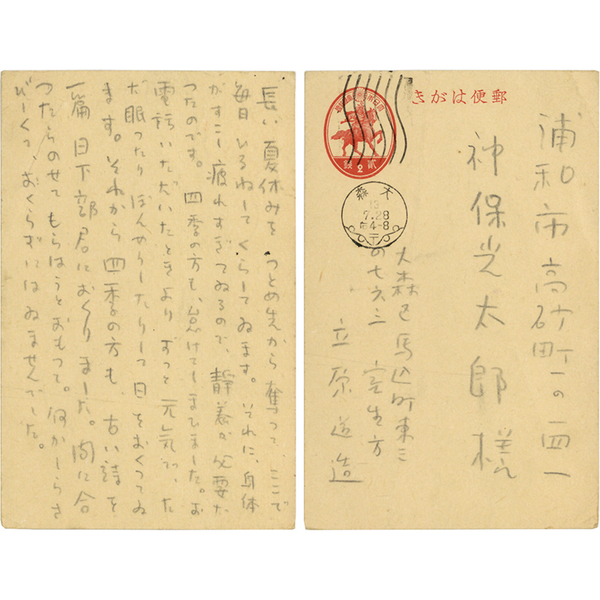 長い夏休みを つとめ先から奪つて ここで
毎日 ひるねしてくらしてゐます。それに、身体
がすこし疲れすぎてゐるので、静養が必要だ
つたのです。四季の方も、怠けてしまひました。お
電話いただいたときより ずつと元気で、た
だ眠つたり ぼんやりしたりして日をおくつてゐ
ます。それから 四季の方も、古い詩を
一篇 日下部君におくりました。間に合
つたらのせてもらはうとおもつて。何かしらさ
びしくて、おくらずにはゐませんでした。
郵便はがき
貳銭
大森
13
7.28
后4-8
浦和市高砂町一の四一
神保光太郎様
大森区馬込町東三
の七六三 室生方
立原道造